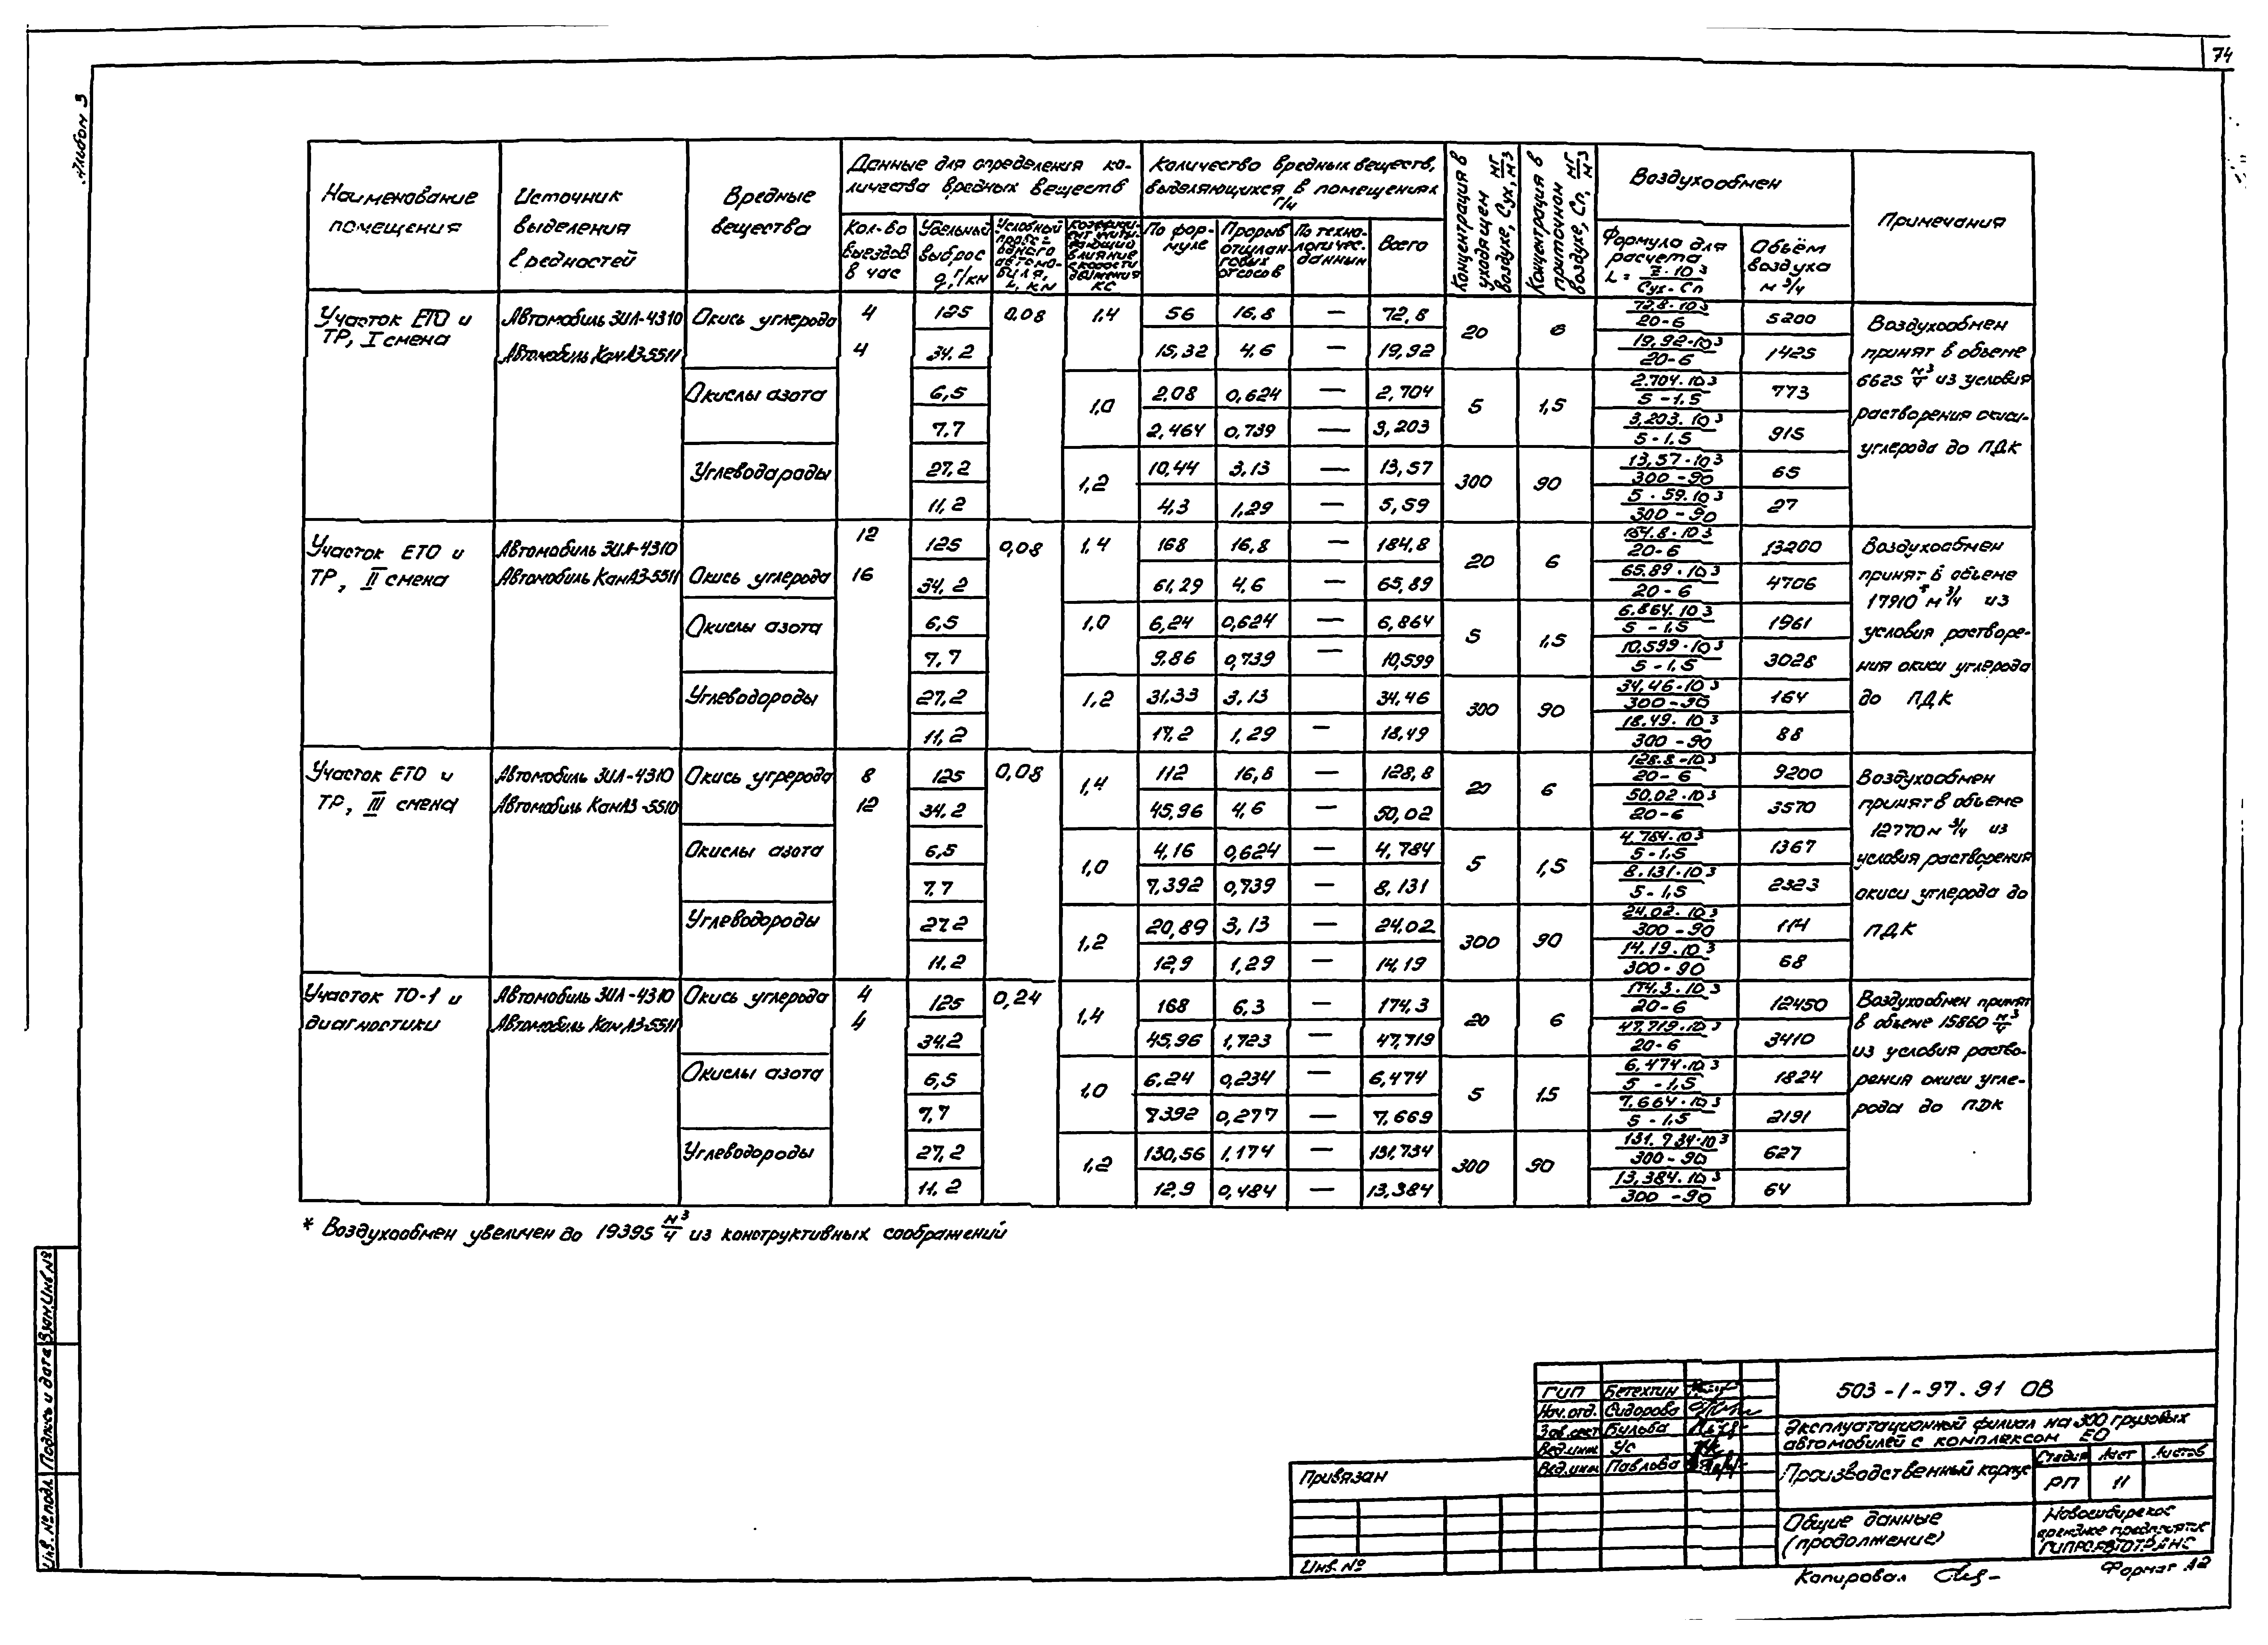 74
Альбом 3
Наименование помещения | Источник выделения вредностей | Вредные вещества | Данные для определения количества вредных веществ | Количество вредных веществ, выделяющихся в помещениях г/ч | Концентрация в уходящем воздухе, Сух, мг/м3 | Концентрация в приточном воздухе, Сп, мг/м3 | Воздухообмен | Примечания
Кол-во выездов в час | Удельный выброс q, г/км | Условный пробег одного автомобиля, L, км | Коэффициент учитывающий влияние скорости движения КС | По формуле | Прорыв от шланговых отсосов | По технологичес. данным | Всего | Формула для расчета L = Z·10³/Сух-Сп | Объём воздуха м³/ч
Участок ЕТО и ТР, I смена | Автомобиль ЗИЛ-4310 | Окись углерода | 4 | 125 | 0.08 | 1,4 | 56 | 16,8 | — | 72,8 | 20 | 6 | 72,8·10³/20-6 | 5200
Автомобиль КамАЗ-5511 | 4 | 34.2 | 15,32 | 4,6 | — | 19,92 | 19,92·10³/20-6 | 1425
Окислы азота | 6,5 | 1,0 | 2,08 | 0,624 | — | 2,704 | 5 | 1,5 | 2.704·10³/5-1.5 | 773
7.7 | 2,464 | 0,739 | — | 3,203 | 3,203·10³/5-1.5 | 915
Углеводароды | 27,2 | 1,2 | 10,44 | 3,13 | — | 13,57 | 300 | 90 | 13,57·10³/300-90 | 65
11,2 | 4,3 | 1,29 | — | 5,59 | 5.59·10³/300-90 | 27
Воздухообмен принят в объеме 6625 м³/ч из условия растворения окиси углерода до ПДК
Участок ЕТО и ТР, II смена | Автомобиль ЗИЛ-4310 | 12 | 125 | 0,08 | 1,4 | 168 | 16,8 | — | 184,8 | 20 | 6 | 184.8·10³/20-6 | 13200
Автомобиль КамАЗ-5511 | Окись углерода | 16 | 34,2 | 61,29 | 4,6 | — | 65,89 | 65,89·10³/20-6 | 4706
Окислы азота | 6,5 | 1,0 | 6,24 | 0,624 | — | 6,864 | 5 | 1,5 | 6.864·10³/5-1,5 | 1961
7,7 | 9,86 | 0,739 | — | 10,599 | 10,599·10³/5-1,5 | 3028
Углеводороды | 27,2 | 1,2 | 31,33 | 3,13 | — | 34,46 | 300 | 90 | 34,46·10³/300-90 | 164
11,2 | 17,2 | 1,29 | — | 18,49 | 18.49·10³/300-90 | 88
Воздухообмен принят в объеме 17910* м³/ч из условия растворения окиси углерода до ПДК
Участок ЕТО и ТР, III смена | Автомобиль ЗИЛ-4310 | Окись угрерода | 8 | 125 | 0,08 | 1,4 | 112 | 16,8 | — | 128,8 | 20 | 6 | 128.8·10³/20-6 | 9200
Автомобиль КамАЗ-5510 | 12 | 34.2 | 45,96 | 4,6 | — | 50,02 | 50.02·10³/20-6 | 3570
Окислы азота | 6,5 | 1,0 | 4,16 | 0,624 | — | 4,784 | 5 | 1,5 | 4.784·10³/5-1,5 | 1367
7.7 | 7,392 | 0,739 | — | 8,131 | 8.131·10³/5-1,5 | 2323
Углеводороды | 27.2 | 1,2 | 20,89 | 3,13 | — | 24,02 | 300 | 90 | 24,02·10³/300-90 | 114
11.2 | 12,9 | 1,29 | — | 14,19 | 14.19·10³/300-90 | 68
Воздухообмен принят в объеме 12770 м³/ч из условия растворения окиси углерода до ПДК
Участок ТО-1 и диагностики | Автомобиль ЗИЛ-4310 | Окись углерода | 4 | 125 | 0,24 | 1,4 | 168 | 6,3 | — | 174,3 | 20 | 6 | 174,3·10³/20-6 | 12450
Автомобиль КамАЗ-5511 | 4 | 34.2 | 45,96 | 1,723 | — | 47,719 | 47,719·10³/20-6 | 3410
Окислы азота | 6,5 | 1,0 | 6,24 | 0,234 | — | 6,474 | 5 | 1.5 | 6,474·10³/5-1,5 | 1824
7,7 | 7392 | 0,277 | — | 7,669 | 7.664·10³/5-1,5 | 2191
Углеводороды | 27,2 | 1,2 | 130,56 | 1.174 | — | 131,734 | 300 | 90 | 131.734·10³/300-90 | 627
11,2 | 12,9 | 0,484 | — | 13,384 | 13,384·10³/300-90 | 64
Воздухообмен принят в объеме 15860 м³/ч из условия растворения окиси углерода до ПДК
* Воздухообмен увеличен до 19395 м³/ч из конструктивных соображений
Взам.Инв.№
Подпись и дата
Инв. №подл.
Привязан
Инв.№
ГИП Бетехтин
Нач.отд. Сидорова
Зав.сект Бульба
Вед.инж Ус
Вед.инж Павлова
503-1-97.91 ОВ
Эксплуатационный филиал на 300 грузовых
автомобилей с комплексом ЕО
Производственный корпус
Стадия Лист Листов
РП 11
Общие данные
(продолжение)
Новосибирское
арендное предприятие
ГИПРОАВТОТРАНС
Копировал
Формат А2